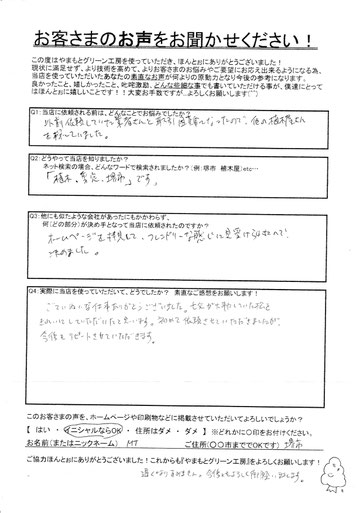 お客さまのお声をお聞かせください！
この度はやまもとグリーン工房を使っていただき、ほんとぉにありがとうございました！
現状に満足せず、より技術を高めて、よりお客さまのお悩みやご要望にお応え出来るようになる為、
当店を使っていただいたあなたの素直なお声が何よりの原動力となり今後の参考になります。
良かったこと、嬉しかったこと、叱咤激励、どんな些細な事でも書いていただける事が、僕達にとって
はほんとぉに嬉しいことです！！大変お手数ですが…よろしくお願いします(^^)
Q1:当店に依頼される前は、どんなことでお悩みでしたか？
を探していました。
Q2:どうやって当店を知りましたか？
ネット検索の場合、どんなワードで検索されましたか？(例:堺市 植木屋)etc…
「植木、剪定、堺市」です。
Q3:他にも似たような会社があったにもかかわらず、
何(どの部分)が決め手となって当店に依頼されたのですか？
ホームページを拝見して、フレンドリーな感じに見受けられたので、
決めました。
Q4:実際に当店を使っていただいて、どうでしたか？ 素直なご感想をお願いします！
ていねいな仕事ありがとうございました。
きれいにしていただいたと思います。初めて依頼させていただきましたが、
今後もリピートさせていただきます。
このお客さまの声を、ホームページや印刷物などに掲載させていただいてよろしいでしょうか？
【 はい ・ イニシャルならOK ・ 住所はダメ ・ ダメ 】※どれかに○印をお付けください。
お名前(またはニックネーム) MT ご住所(○○市まででOKです) 堺市
ご協力ほんとぉにありがとうございました！これからも『やまもとグリーン工房』をよろしくお願いします！
遅くなりすみません。今後もよろしくお願い致します。